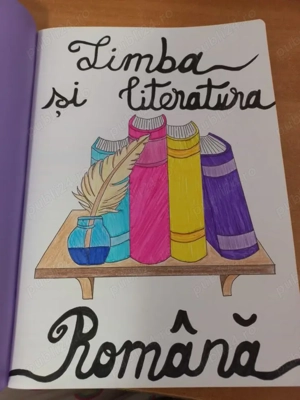 Limba
și literatura
Română